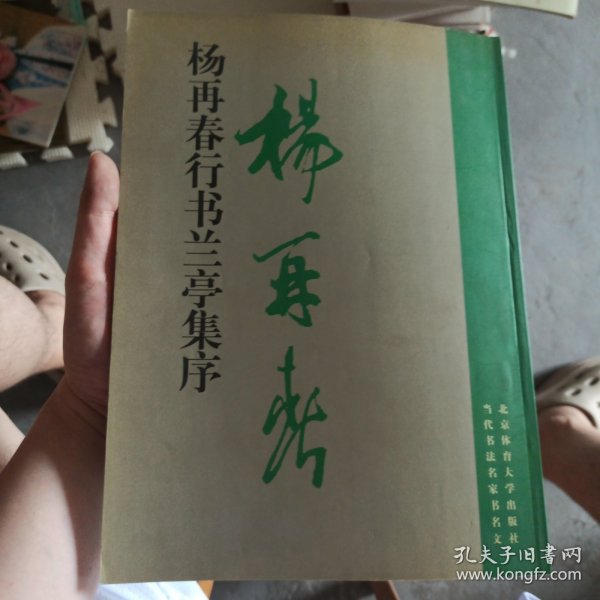 杨再春行书兰亭集序
楊再春
北京体育大学出版社
当代书法名家书名文
孔夫子旧书网
www.kongfz.com